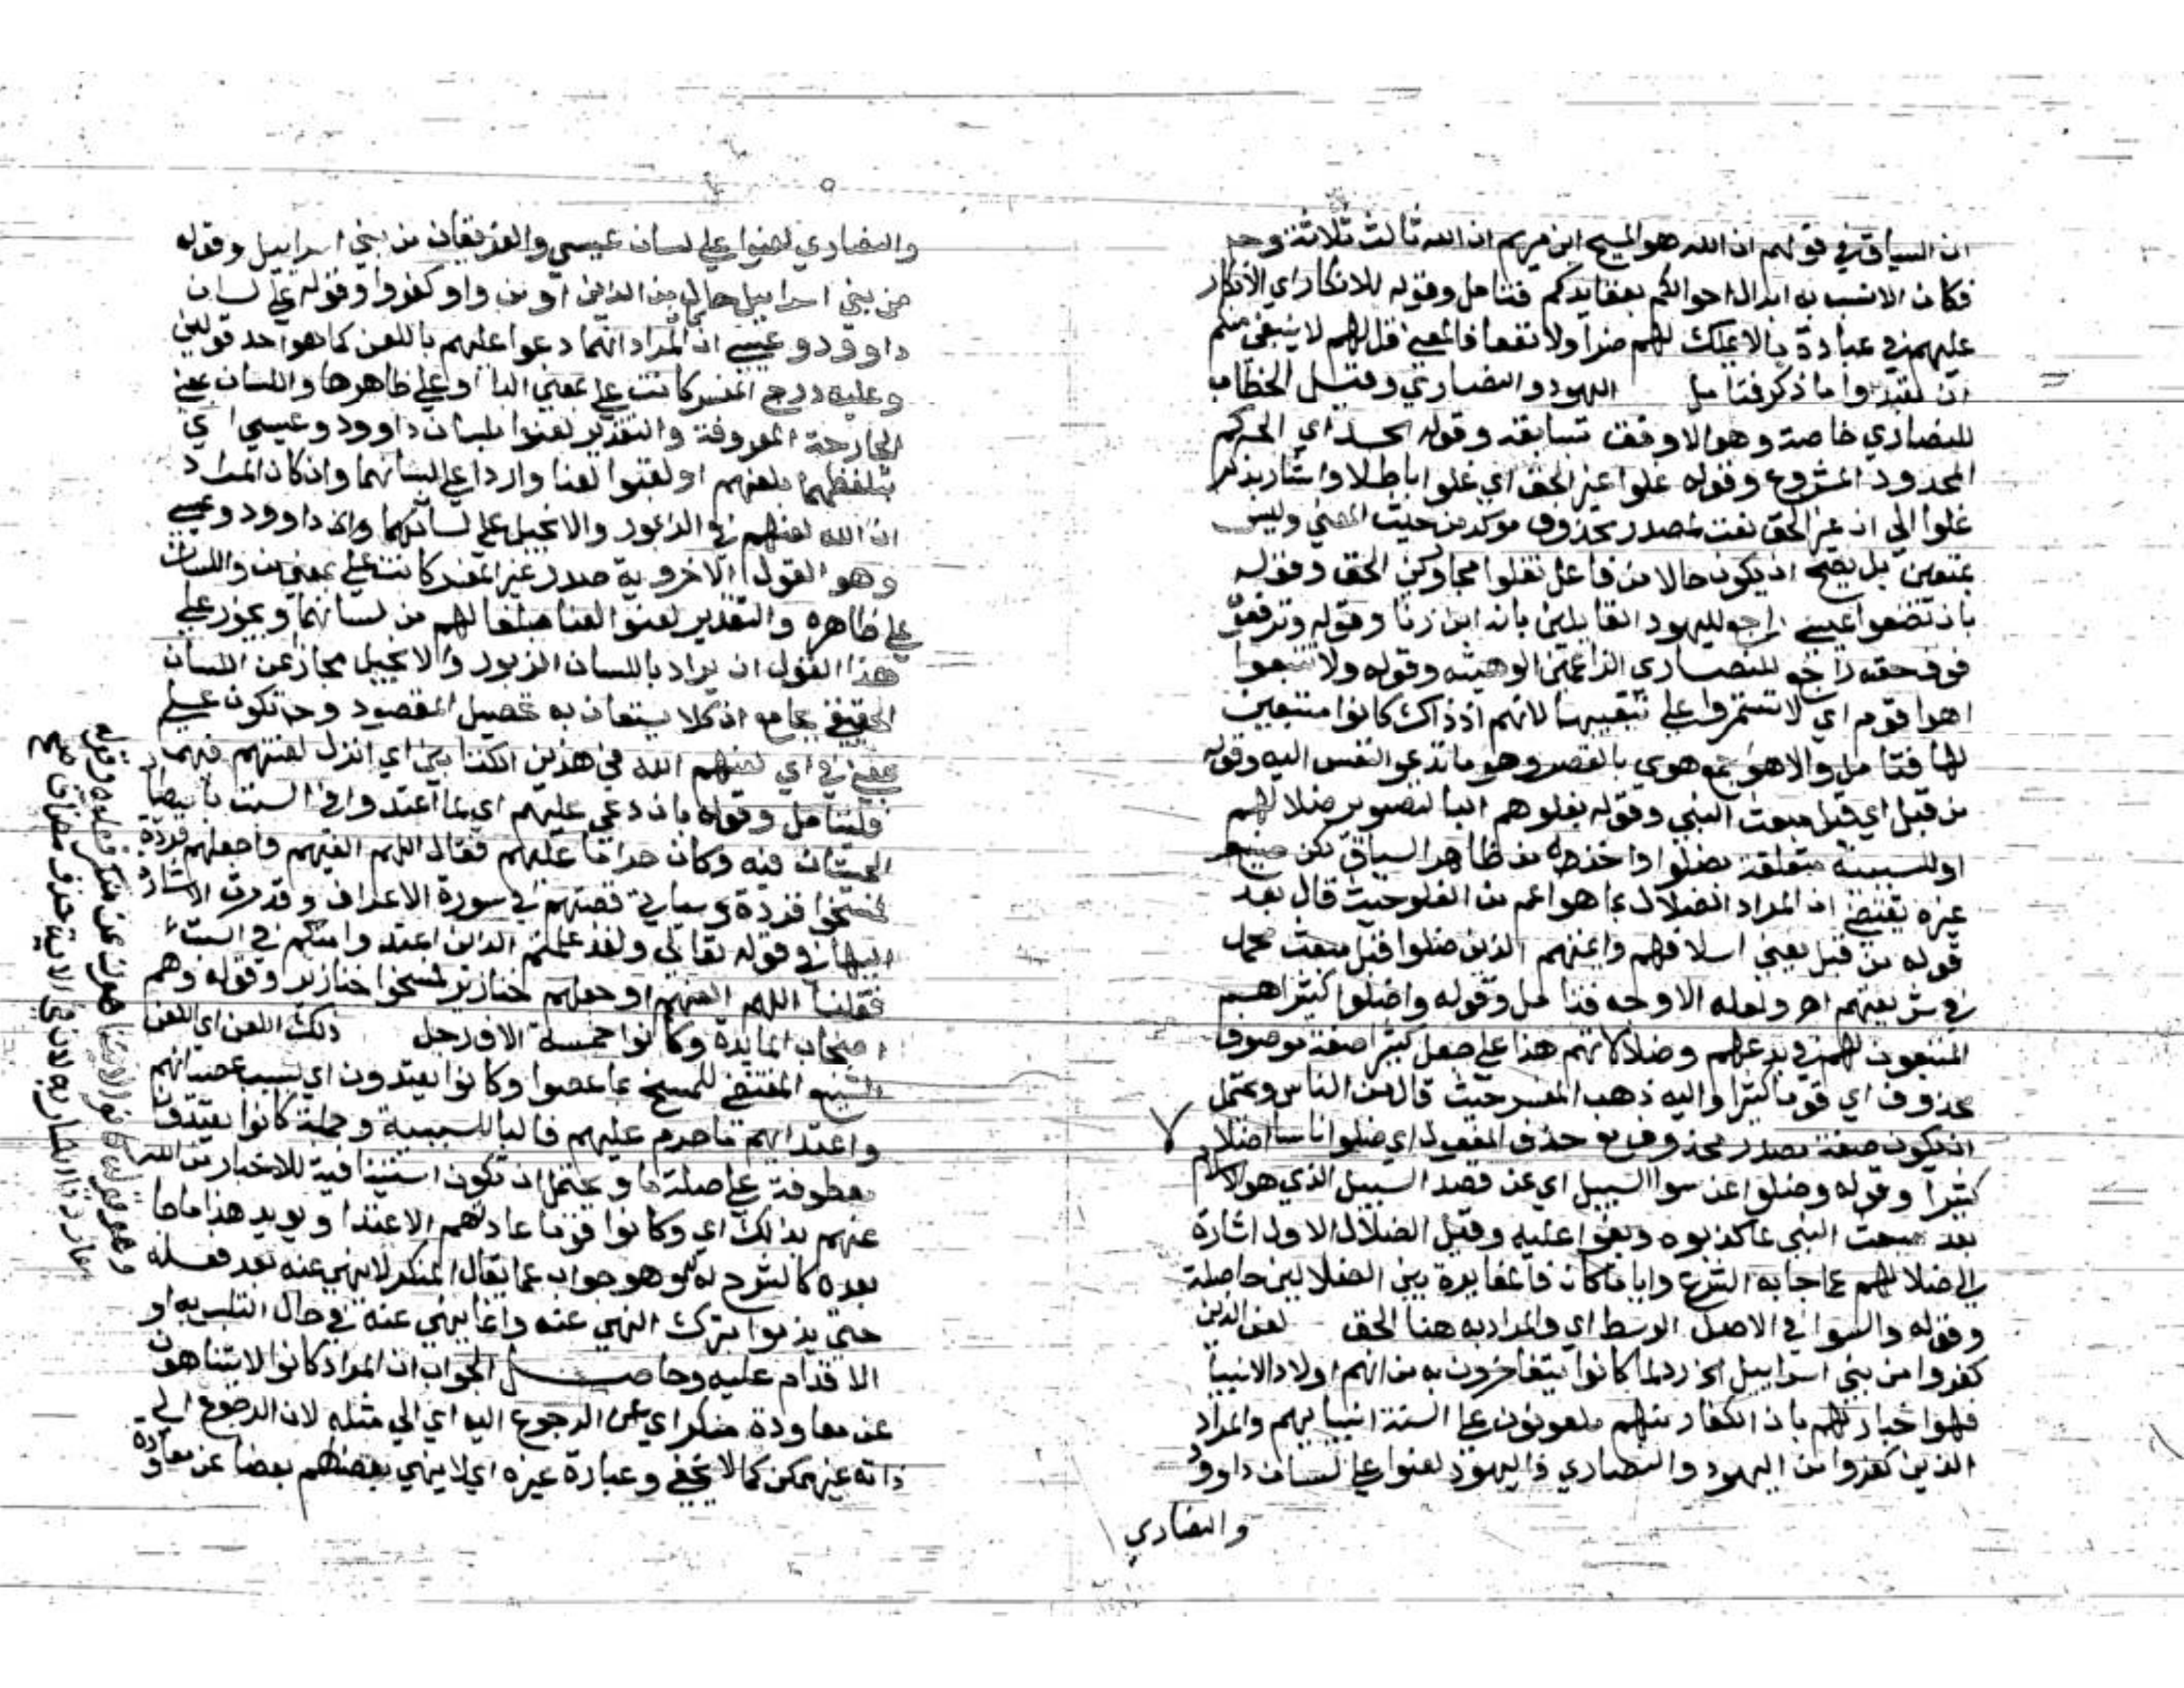 ان السياق في قولهم ان الله هو المسيح ابن مريم ان الله ثالث ثلاثة وحـ
فكان الانسب به ابدال احوالكم بعقايدكم فتامل وقوله للانكار اي الانكار
عليهم في عبادة مالا يملك لهم ضرا ولا نفعا فالمعنى قل لهم لا ينبغي منكم
ان تعبدوا ما ذكر فتامل اليهود والنصاري وقيل الخطاب
للنصاري خاصة وهو الاوفق بسابقه وقوله الحد اي الحد كم
المحدود المشروع وقوله غلوا غير الحق اي غلوا باطلا واشار بذكر
غلوا الي ان غير الحق نعت لمصدر محذوف موكد من حيث المعني وليس
بمتعين بل يصح ان يكون حالا من فاعل تغلوا مجاوزين الحق وقوله
بان تضعوا عيسى راجع لليهود القايلين بانه ابن زنا وقوله وترفعوه
فوق حقه راجع للنصاري الزاعمين الوهيته وقوله ولا تتبعوا
اهوا قوم اي لا تستمروا على تتبعيها لانهم اذ ذاك كانوا متبعين
لها فتامل والاهوا جمع هوي بالقصر وهو ما تدعو النفس اليه وقوله
من قبل اي قبل مبعث النبي وقوله بغلوهم البا لتصوير ضلالهم
او للسببية متعلقة بضلوا واخذه من ظاهر السياق لكن صنيع
غيره يقتضي ان المراد الضلال بما هو اعم من الغلو حيث قال بعد
قوله من قبل يعني اسلافهم وايمتهم الذين ضلوا قبل مبعث محمد
في شريعتهم اهـ ولعله الاوجه فتامل وقوله واضلوا كثيرا هم
المتبعون لهم في بدعهم وضلالاتهم هذا علي جعل كثيرا صفة موصوف
محذوف اي قوما كثيرا واليه ذهب المفسر حيث قال من الناس ويحتمل
ان يكون صفة مصدر محذوف مع حذف المفعول اي ضلوا ناسا اضلالا
كثيرا وقوله وضلوا عن سوا السبيل اي عن قصد السبيل الذي هو الاسلام
بعد مبعث النبي بما كذبوه وبغوا عليه وقيل الضلال الاول اشارة
الي ضلالهم عما جا به الشرع وايا ما كان فالمغايرة بين الضلالين حاصلة
وقوله والسوا في الاصل الوسط اي والمراد به هنا الحق لعن الذين
كفروا من بني اسراييل الخ رد لما كانوا يتفاخرون به من انهم اولاد الانبيا
فهوا خبار لهم بان الكفار منهم ملعونون على السنة انبيايهم والمراد
الذين كفروا من اليهود والنصاري فاليهود لعنوا علي لسان داوود
والنصاري
والنصاري لعنوا علي لسان عيسي والفريقان من بني اسراييل وقوله
من بني اسراييل حال من الذين او من واو كفروا وقوله علي لسان
داوود وعيسى ان المراد انهما دعوا عليهم باللعن كما هو احد قولين
وعليه درج المفسر كانت علي بمعني البا او علي ظاهرها واللسان بمعني
الجارحة المعروفة والتقدير لعنوا بلسان داوود وعيسي اي
بتلفظهما بلعنهم او لعنوا لعنا واردا علي لسانهما وان كان المراد
ان الله لعنهم في الزبور والانجيل على لسانهما واي داوود وعيسى
وهو القول الاخر وبه صدر غير المفسر كانت علي بمعني من واللسان
علي ظاهره والتقدير لعنوا لعنا مبلغا لهم من لسانهما ويجوز علي
هذا القول ان يراد باللسان الزبور والانجيل مجاز عن اللسان
الحقيقي بجامع ان كلا يستعان به تحصيل المقصود وح تكون علي
بمعني في اي لعنهم الله في هذين الكتابين اي انزل لعنتهم فيهما
فليتامل وقوله بان دعي عليهم اي لما اعتدوا في السبت باصطياد
الحيتان فيه وكان حراما عليهم فقال اللهم العنهم واجعلهم قردة
فمسخوا قردة وسياتي قصتهم في سورة الاعراف وقد مرت الاشارة
اليها في قوله تعالي ولقد علمتم الذين اعتدوا منكم في السبت
فقلنا اللهم العنهم واجعلهم خنازير فمسخوا خنازير وقوله وهم
اصحاب المايدة وكانوا خمسة الاف رجل ذلك اللعن اي اللعن
الشنيع المقتضي للمسخ بما عصوا وكانوا يعتدون اي بسبب عصيانهم
واعتدايهم ما حرم عليهم فالبا للسببية وجملة كانوا يعتدون
معطوفة علي صلة ما ويحتمل ان تكون استينافية للاخبار من الله
عنهم بذلك اي وكانوا قوما عادتهم الاعتدا ويويد هذا ما جا
بعده كالشرح له وهو جواب عما يقال المنكر لا ينهي عنه بعد فعله
حتي يذموا بترك النهي عنه وانما ينهي عنه في حال التلبس به او
الاقدام عليه وحاصـــل الجواب ان المراد كانوا لا يتناهون
عن معاودة منكر اي عن الرجوع اليه اي الي مثله لان الرجوع الي
ذاته غير ممكن كما لا يخفي وعبارة غيره اي لا ينهي بعضهم بعضا عن معاودة
وهو قوله كانوا لا يتناهون عن منكر فعلوه وقوله